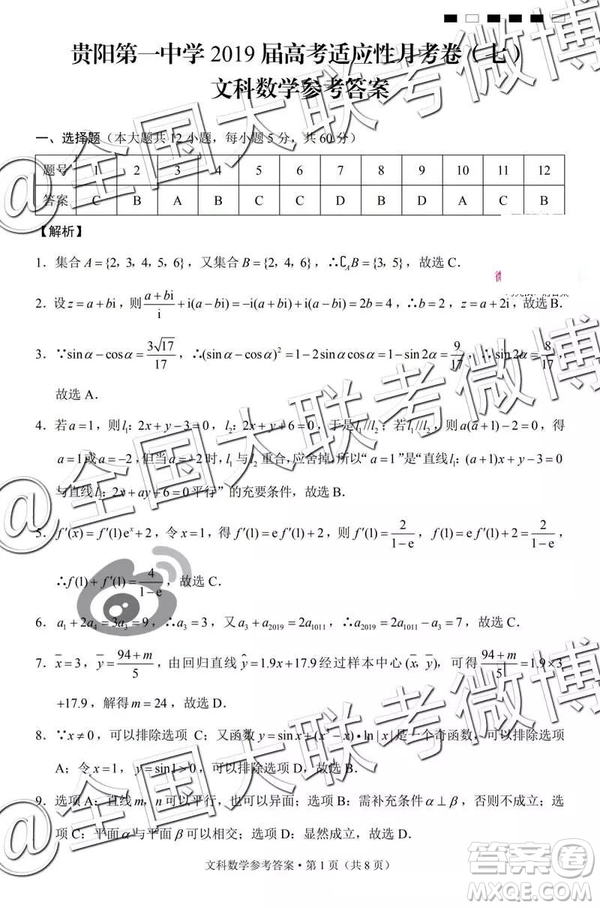 贵阳第一中学 2019 届高考适应性月考卷（七）
文科数学参考答案
一、选择题（本大题共 12 小题，每小题 5 分，共 60 分）
题号 1 2 3 4 5 6 7 8 9 10 11 12
答案 C B A C C B D D A C
【解析】
1．集合 A={2，3，4，5，6}，又集合 B={2，4，6}，∴∁_A B={3，5}，故选 C．
2．设 z=a+bi，则 (a+bi)/i+i(a−bi)=−i(a+bi)+i(a−bi)=2b=4，∴b=2，z=a+2i，故选 B．
3．∵sinα−cosα=3√17/17，∴(sinα−cosα)²=1−2sinαcosα=1−sin2α=9/17，∴sin2α=8/17，
故选 A．
4．若 a=1，则 l₁：2x+y−3=0，l₂：2x+y+6=0，于是 l₁//l₂；若 l₁//l₂，则 a(a+1)−2=0，得
a=1或a=−2，但当 a=−2 时，l₁ 与 l₂ 重合，应舍掉，所以“a=1”是“直线 l₁：(a+1)x+y−3=0
与直线 l₂：2x+ay+6=0 平行”的充要条件，故选 C．
5．f′(x)=f′(1)eˣ+2，令 x=1，得 f′(1)=e f′(1)+2，则 f′(1)=2/(1−e)，
∴f(1)+f′(1)=4/(1−e)，故选 C．
6．a₁+2a₄=3a₃=9，∴a₃=3，又 a₃+a₂₀₁₉=2a₁₀₁₁，∴2a₁₀₁₁−a₂₀₁₉=a₃，故选 C．
7．x̄=3，ȳ=(94+m)/5，由回归直线 ŷ=1.9x+17.9 经过样本中心 (x̄，ȳ)，可得 (94+m)/5=1.9×3
+17.9，解得 m=24，故选 B．
8．∵x≠0，可以排除选项 C；又函数 y=sinx+(x³−x)·ln|x| 是一个奇函数，可以排除选项
A；令 x=1，y=sin1>0，可以排除选项 B，故选 D．
9．选项 A：直线 m，n 可以平行，也可以异面；选项 B：需补充条件 α⊥β，否则不成立；选
项 C：平面 α 与平面 β 可以平行，也可以相交；选项 D：显然成立，故选 D．
文科数学参考答案·第 1 页（共 8 页）
@全国大联考微博
@全国大联考微博
@全国大联考微博
答案卷
MXQE.COM